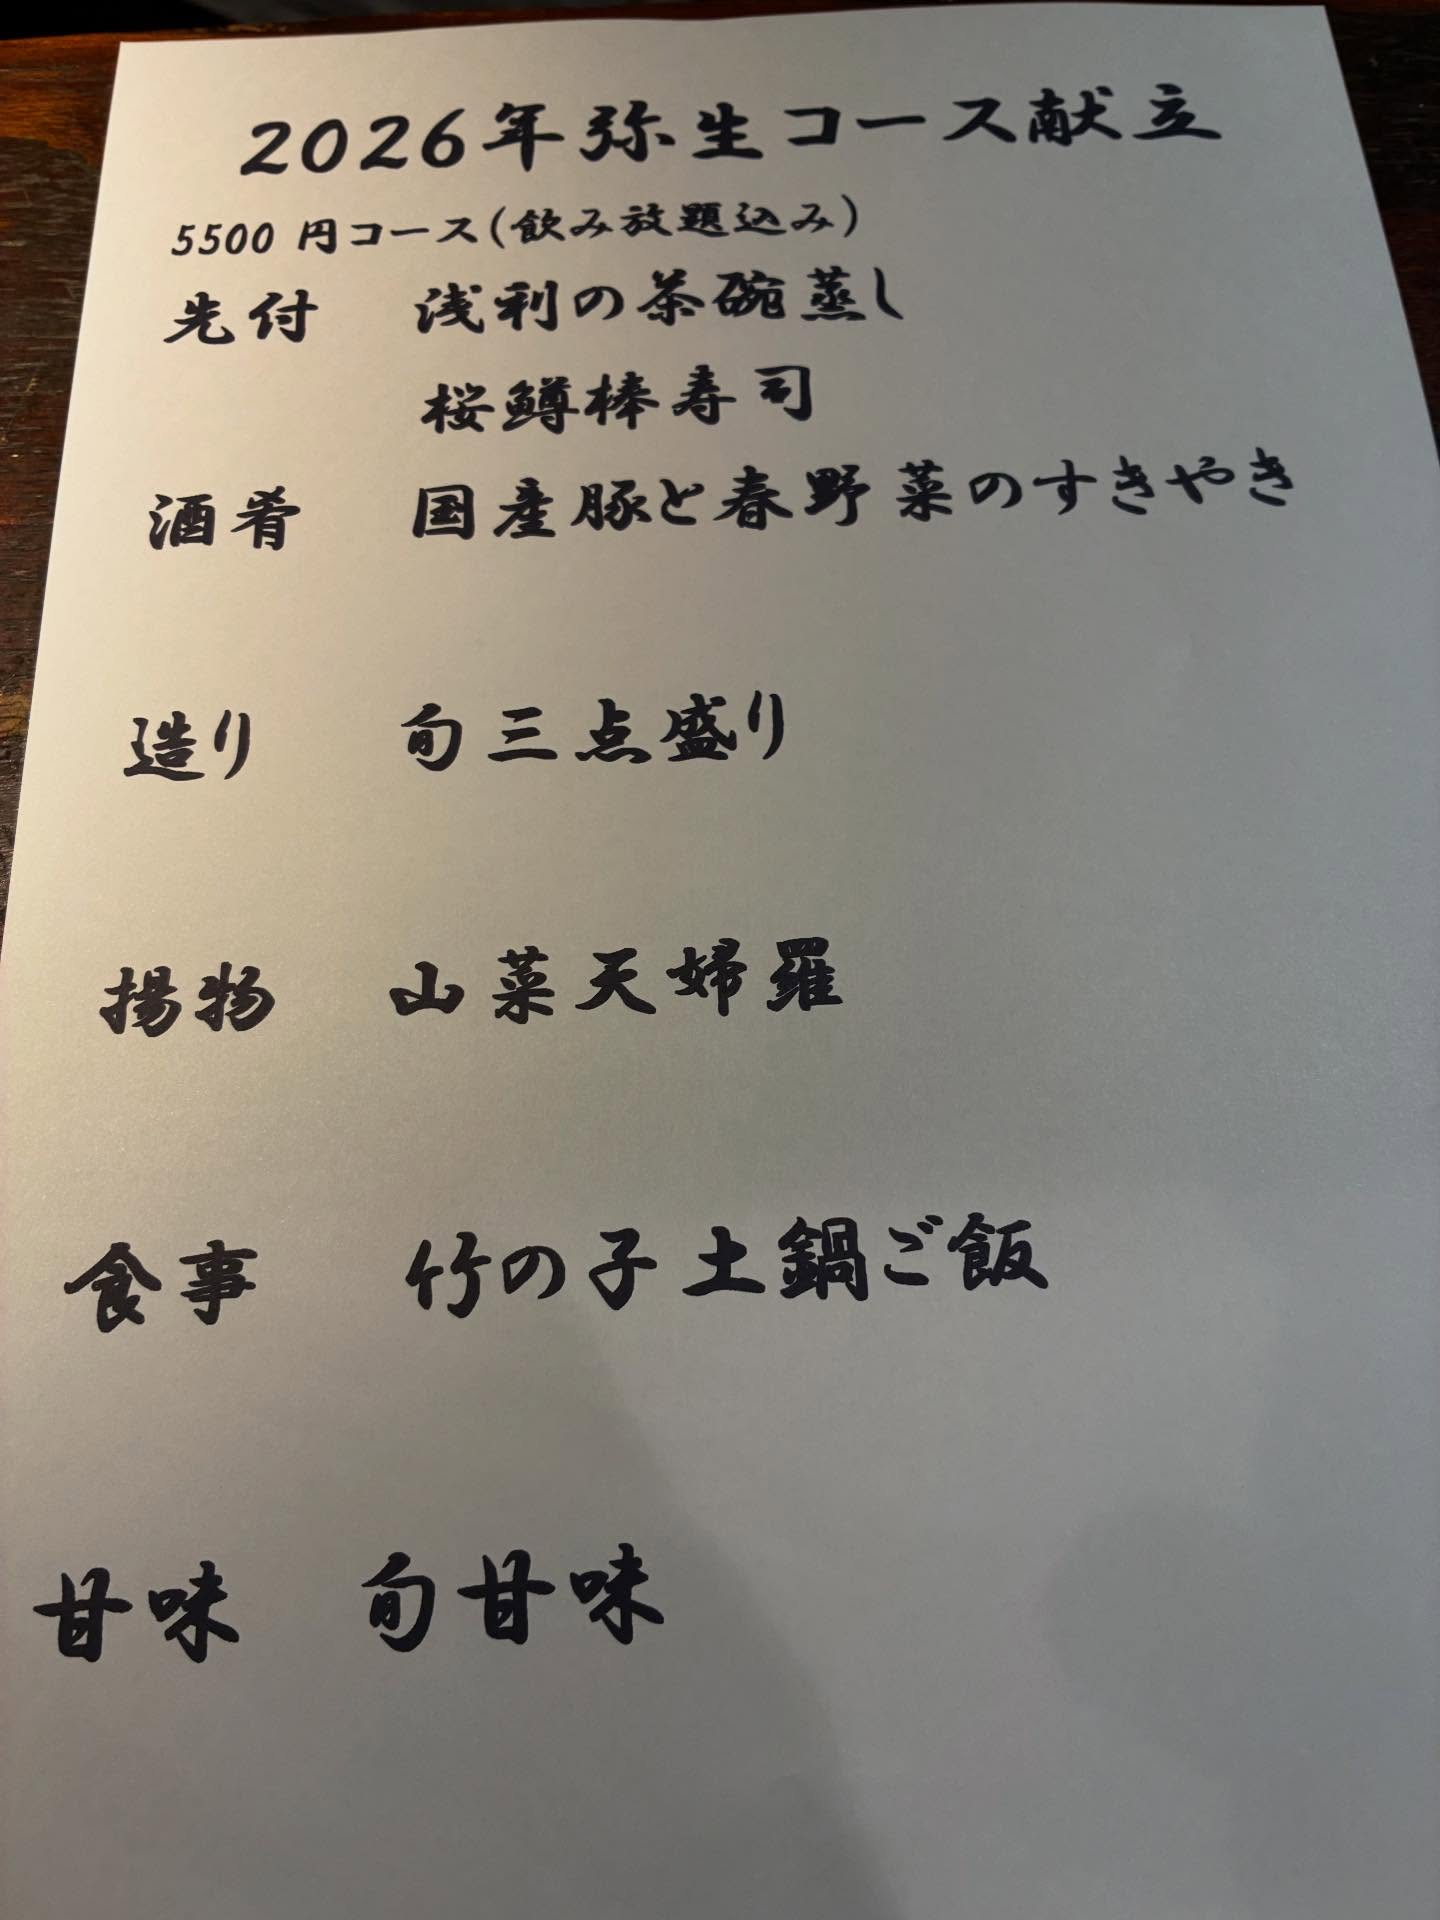 2026年弥生コース献立
5500 円コース(飲み放題込み)
先付 浅利の茶碗蒸し
桜鱒棒寿司
酒肴 国産豚と春野菜のすきやき
造り 旬三点盛り
揚物 山菜天婦羅
食事 竹の子土鍋ご飯
甘味 旬甘味